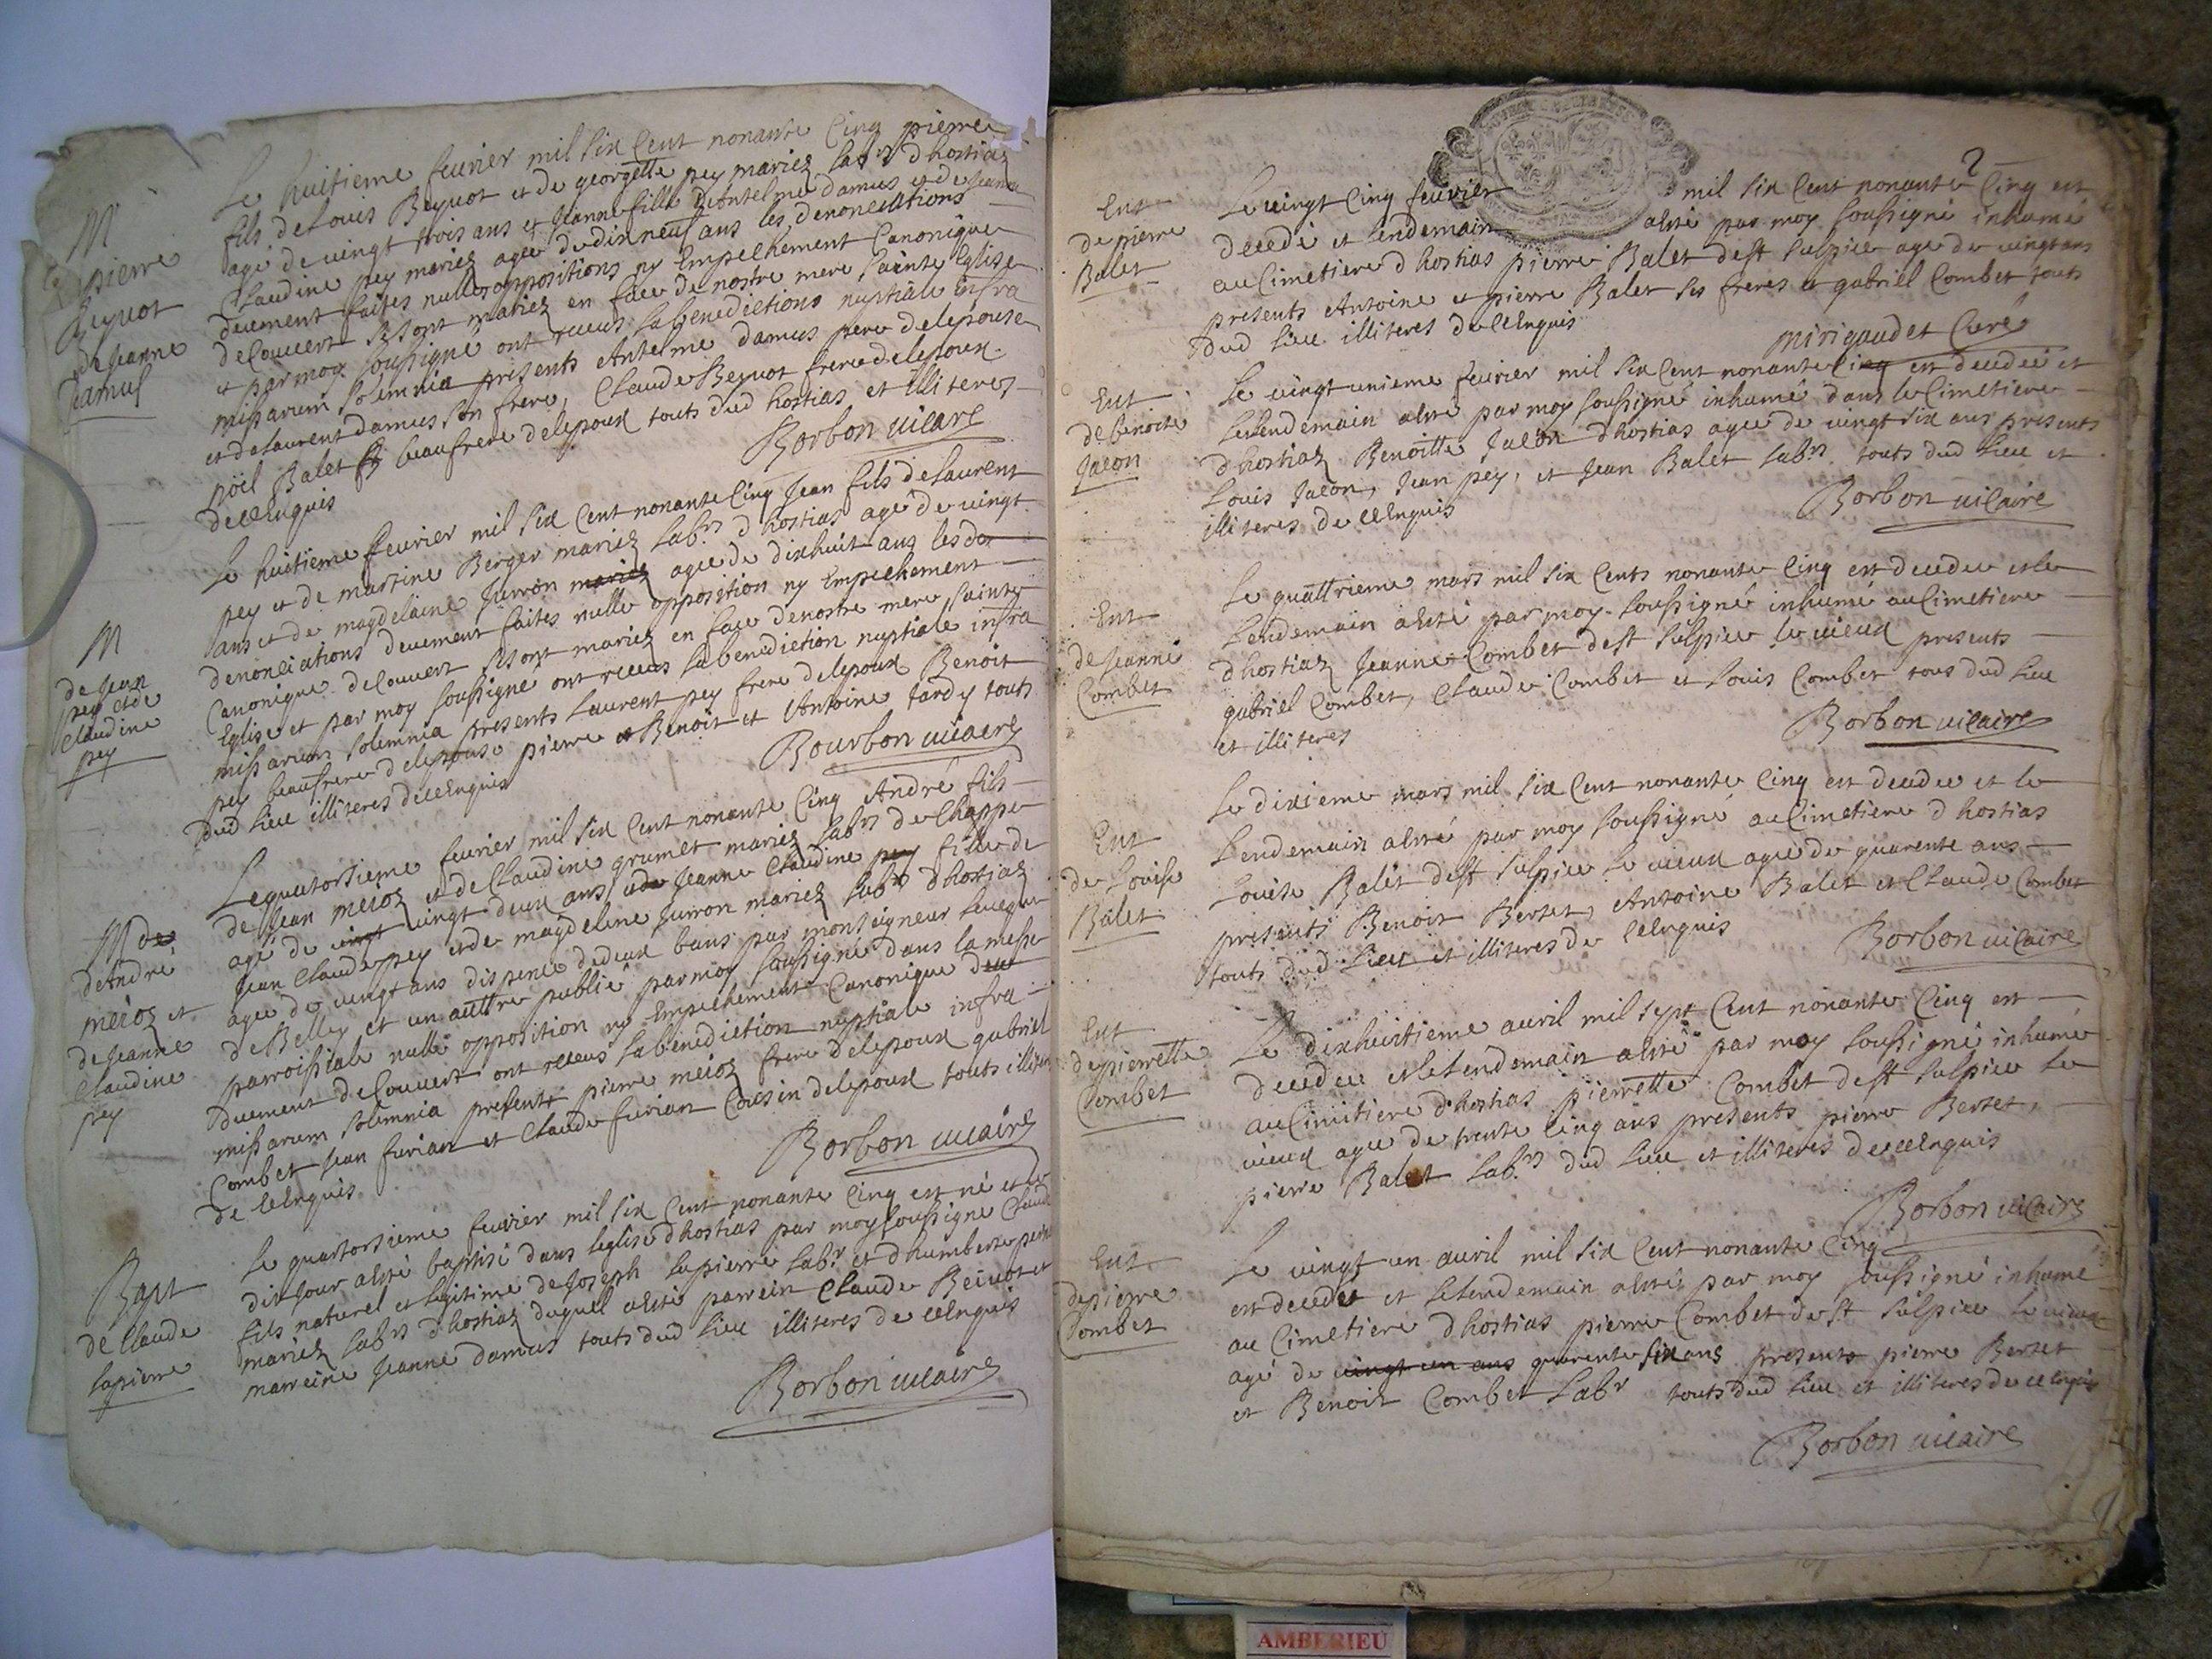 M
de pierre
Beyuot
et de Jeanne
Damus
Le huitieme feurier mil six Cent nonante Cinq pierre
fils de Louis Beyuot et de georgette pey mariez labrs dhostiaz
agé de uingt trois ans et Jeanne fille dAntelme damus et de Jeanne
Claudine pey mariez agee de dix neuf ans les denonciations
deuement faites nulles oppositions ny Empechement Canonique
decouuert se sont mariez en face de nostre mere sainte Eglise
et par moy soussigné ont receus la benediction nuptiale infra
missarum solemnia presents Antelme damus pere de lepouse
et de Laurent damus son frere, Claude Beyuot frere de lepoux
noël Balet beaufrere de lepoux touts dud hostias et illiteres
de ce Enquis
Borbon uicaire
M
de Jean
pey et de
Claudine
pey
Le huitieme feurier mil six Cent nonante Cinq Jean fils de Laurent
pey et de martine Berger mariez labrs dhostias agé de uingt
ans et de magdelaine Juiron mariez agee de dixhuit ans les de
denonciations deuement faites nulle opposition ny Empechement
Canonique decouuert se sont mariez en face de nostre mere sainte
Eglise et par moy soussigné ont receus la benediction nuptiale infra
missarum solemnia presents Laurent pey frere de lepoux Benoit
pey beaufrere de lepouse pierre et Benoit et Antoine Tardy touts
dud lieu illiteres de ce Enquis
Bourbon uicaire
M de
dAndré
méroz et
de Jeanne
Claudine
pey
Le quatorsieme feurier mil six Cent nonante Cinq André fils
de Jean méroz et de Claudine grumet mariez labrs de Chappe
agé de uingt uingt deux ans et de Jeanne Claudine pey fille de
Jean Claude pey et de magdeleine Juiron mariez labrs dhostiaz
agee de uingt ans dispence de deux bans par monseigneur leueque
de Belley et un auttre publié par moy soussigné dans la messe
parroissiale nulle opposition ny Empechement Canonique deue
duement decouuert ont receus la benediction nuptiale infra
missarum solemnia presents pierre méroz frere de lepoux gabriel
Combet Jean furian et Claude furian Cousin de lepoux touts illiteres
de ce Enquis
Borbon uicaire
Bapt
de Claude
lapierre
Le quatorsieme feurier mil six Cent nonante Cinq est né et le
dit Jour a esté baptisé dans leglise dhostias par moy soussigné Claude
fils naturel et legitime de Joseph lapierre labr et dhumberte
mariez labrs dhostiaz duquel a esté parrein Claude Beiuot et
marreine Jeanne damus touts dud lieu illiteres de ce Enquis
Borbon uicaire
2
Ent
de pierre
Balet
Le uingt Cinq feurier mil six Cent nonante Cinq est
decedé et lendemain a esté par moy soussigné inhumé
au Cimetiere dhostias pierre Balet de st sulpice agé de uingt ans
presents Antoine et pierre Balet ses freres et gabriel Combet touts
dud lieu illiteres de ce Enquis
mirigaudet Curé
Ent
de benoite
Jacon
Le uingt unieme feurier mil six Cent nonante Cinq est decedée et
le lendemain a esté par moy soussigné inhumé dans le Cimetiere
dhostiaz Benoitte Jacon dhostias agee de uingt six ans presents
Louis Jacon, Jean pey, et Jean Balet labrs touts dud lieu et
illiteres de ce Enquis
Borbon uicaire
Ent
de Jeanne
Combet
Le quattrieme mars mil six Cents nonante Cinq est decedee et le
Lendemain a esté par moy soussigné inhumé au Cimetiere
dhostiaz Jeanne Combet de st sulpice le uieux presents
gabriel Combet, Claude Combet et Louis Combet tous dud lieu
et illiteres
Borbon uicaire
Ent
de Louise
Balet
Le dixieme mars mil six Cent nonante Cinq est decedee et le
Lendemain a esté par moy soussigné au Cimetiere dhostias
Louise Balet de st sulpice le uieux agee de quarente ans
presents Benoit Berset, Antoine Balet et Claude Combet
touts dud lieu et illiteres de ce Enquis
Borbon uicaire
Ent
de pierrette
Combet
Le dixhuitieme auril mil sept Cent nonante Cinq est
decedee et le lendemain a esté par moy soussigné inhumé
au Cimitiere dhostias pierrette Combet de st sulpice le
uieux agee de trente Cinq ans presents pierre Berset,
pierre Balet labrs dud lieu et illiteres de ce Enquis
Borbon uicaire
Ent
de pierre
Combet
Le uingt un auril mil six Cent nonante Cinq
est decedé et le lendemain a esté par moy soussigné inhumé
au Cimetiere dhostias pierre Combet de st sulpice le uieux
agé de uingt un ans quarente six ans presents pierre Berset
et Benoit Combet labr touts dud lieu et illiteres de ce Enquis
Borbon uicaire
AMBERIEU